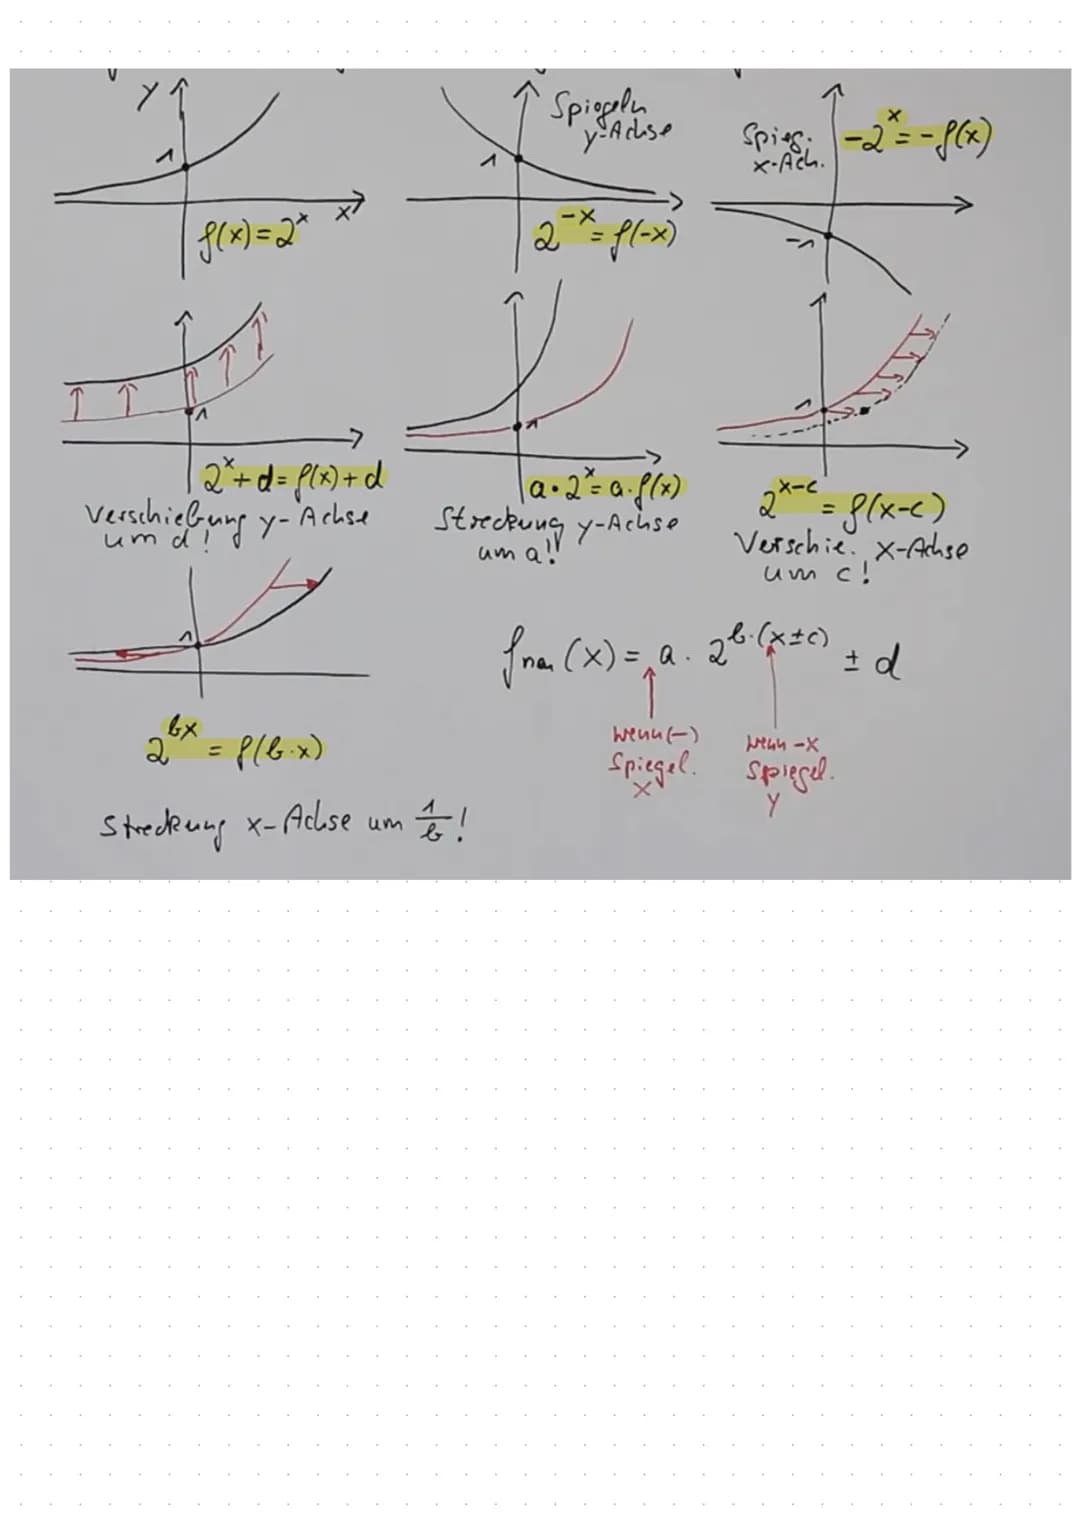 y
1
x
f(x)=2^x
Spiegeln
y-Achse
1
2^-x = f(-x)
Spieg.
x-Ach.
-2^x = -f(x)
-1
1
2^x + d = f(x) + d
Verschiebung y-Achse
um d!
1
a · 2^x = a · f(x)
Streckung y-Achse
um a!!
1
2^x-c = f(x-c)
Verschie. x-Achse
um c!
1
2^bx = f(b·x)
Streckung x-Achse um 1/b!
f (x) = a · 2^b·(x±c) ± d
wenn (-)
Spiegel.
x
wenn -x
Spiegel.
y